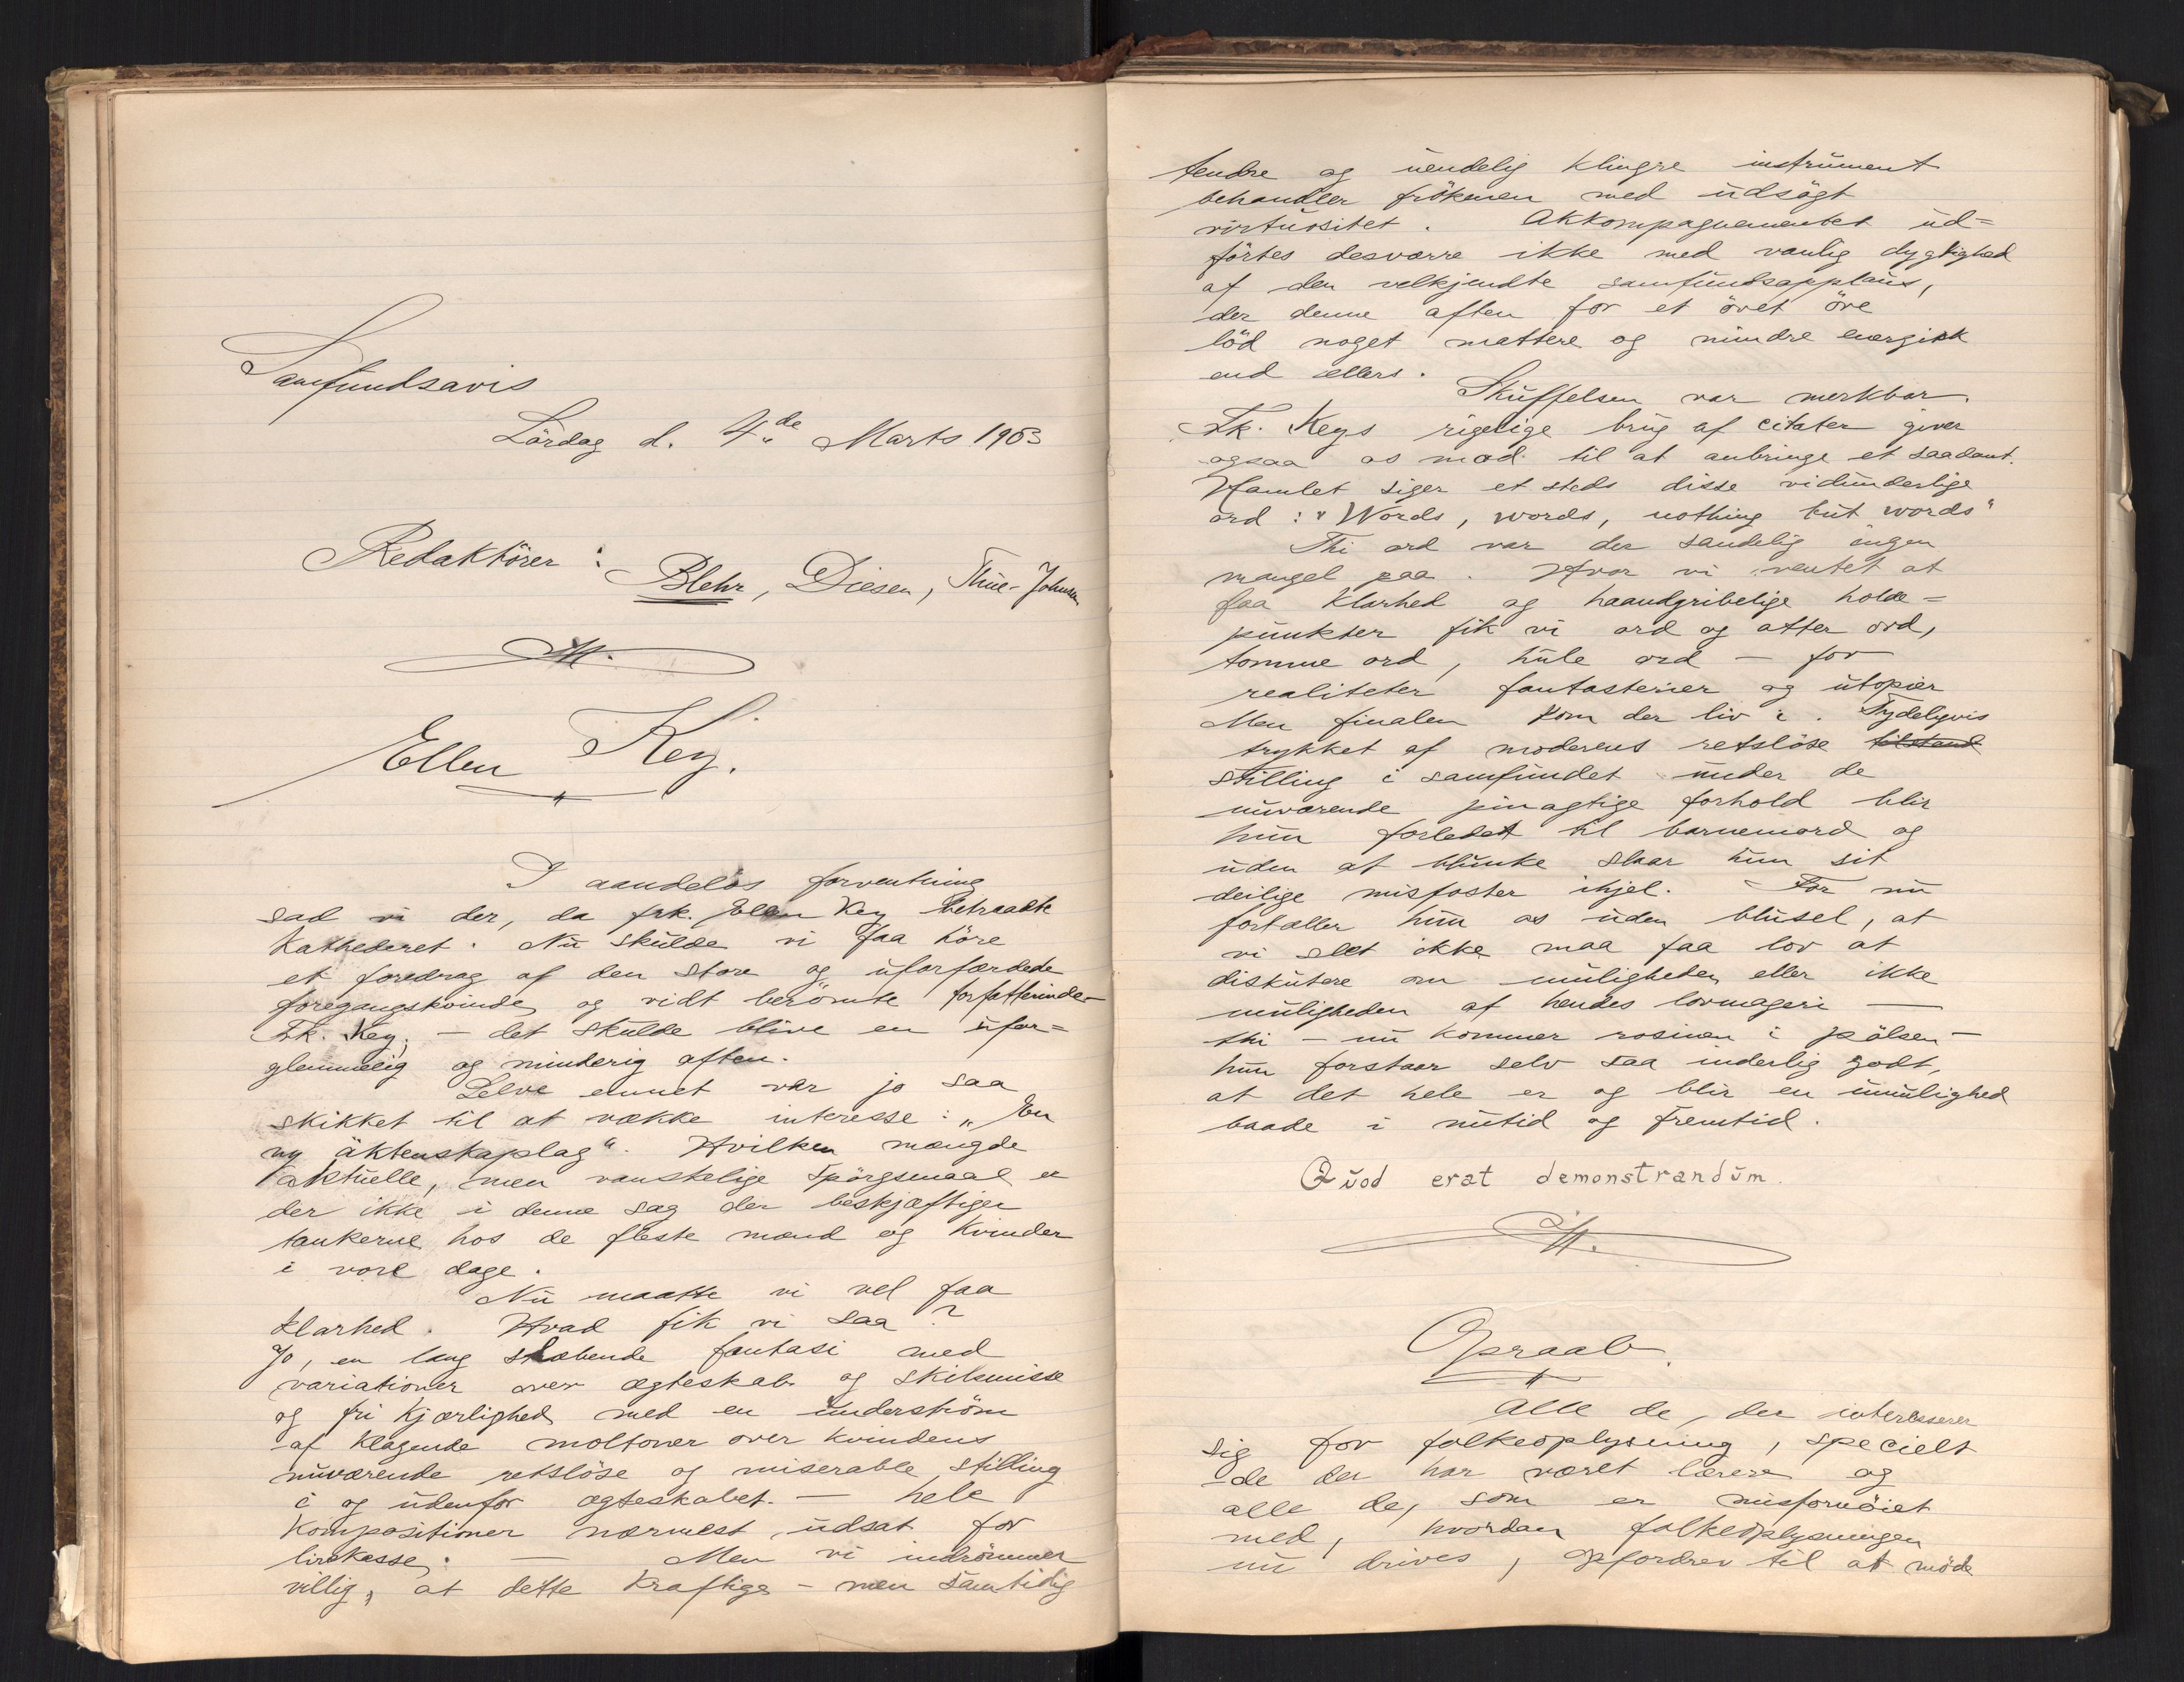 Samfundsavis
Lördag d. 4de Marts 1903
Redaktörer :
Blehr, Diesen, Thue-Johnsen
Ellen Key.
I aandelös forventning
sad vi der, da frk. Ellen Key betraadte
kathederet. Nu skulde vi faa höre
et foredrag af den store og uforfærdede
foregangskvinde og vidt berömte forfatterinde
Fk. Key, — det skulde blive en ufor=
glemmelig og minderig aften.
Selve emnet var jo saa
skikket til at vække interesse : „En
ny äktenskaplag“. Hvilken mængde
aktuelle, men vanskelige spörgsmaal er
der ikke i denne sag der beskjæftiger
tankerne hos de fleste mænd og kvinder
i vore dage.
Nu maatte vi vel faa
klarhed. Hvad fik vi saa ?
Jo, en lang slæbende fantasi med
variationer over ægteskab og skilsmisse
og fri kjærlighed med en underström
af klagende moltoner over kvindens
nuværende retslöse og miserable stilling
i og udenfor ægteskabet. — hele
kompositioner nærmest udsat for
lirekasse. — Men vi indrömmer
villig, at dette kraftige – men samtidig
tendre og uendelig klingre instrument
behandler frökenen med udsögt
virtuositet. Akkompagnementet ud=
förtes desværre ikke med vanlig dygtighed
af den velkjendte samfundsapplaus,
der denne aften for et övet öre
löd noget mattere og mindre energisk
end ellers.
Skuffelsen var merkbar.
Fk. Keys rigelige brug af citater giver
ogsaa os mod til at anbringe et saadant.
Hamlet siger et steds disse vidunderlige
ord : "Words, words, nothing but words"
Thi ord var der sandelig ingen
mangel paa. Hvor vi ventet at
faa klarhed og haandgribelige holde=
punkter fik vi ord og atter ord,
tomme ord, hule ord — for
realiteter fantasterier og utopier
Men finalen kom der liv i. Tydeligvis
trykket af moderens retslöse tilstand
stilling i samfundet under de
nuværende pinagtige forhold blir
hun forledet til barnemord og
uden at blunke slaar hun sit
deilige misfoster ihjel. For nu
fortæller hun os uden blusel, at
vi slet ikke maa faa lov at
diskutere om muligheden eller ikke
muligheden af hendes lovmageri —
thi – nu kommer rosinen i pölsen –
hun forstaar selv saa inderlig godt,
at det hele er og blir en umulighed
baade i nutid og fremtid.
Quod erat demonstrandum.
Opraab.
Alle de, der interesserer
sig for folkeoplysning, specielt
de der har været lærere og
alle de, som er misfornöiet
med, hvordan folkeoplysningen
nu drives, opfordrer til at möde